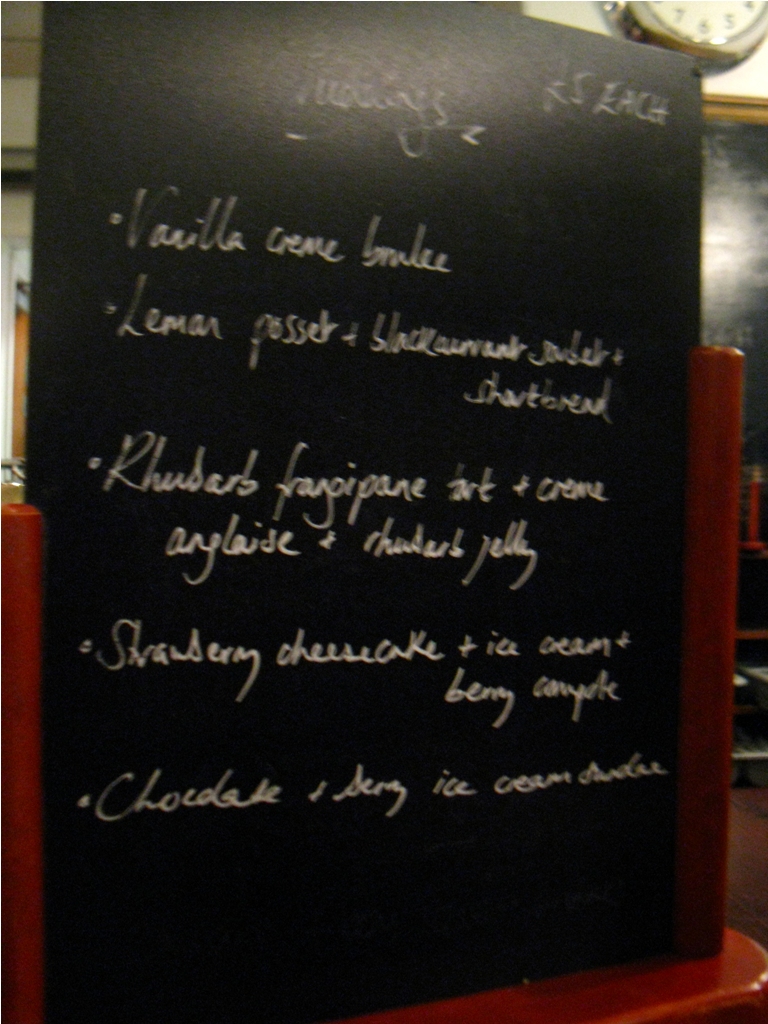 Puddings £5 EACH
• Vanilla creme brulee
• Lemon posset + blackcurrant sorbet +
shortbread
• Rhubarb frangipane tart + creme
anglaise + rhubarb jelly
• Strawberry cheesecake + ice cream +
berry compote
• Chocolate + berry ice cream sundae
7 6 5